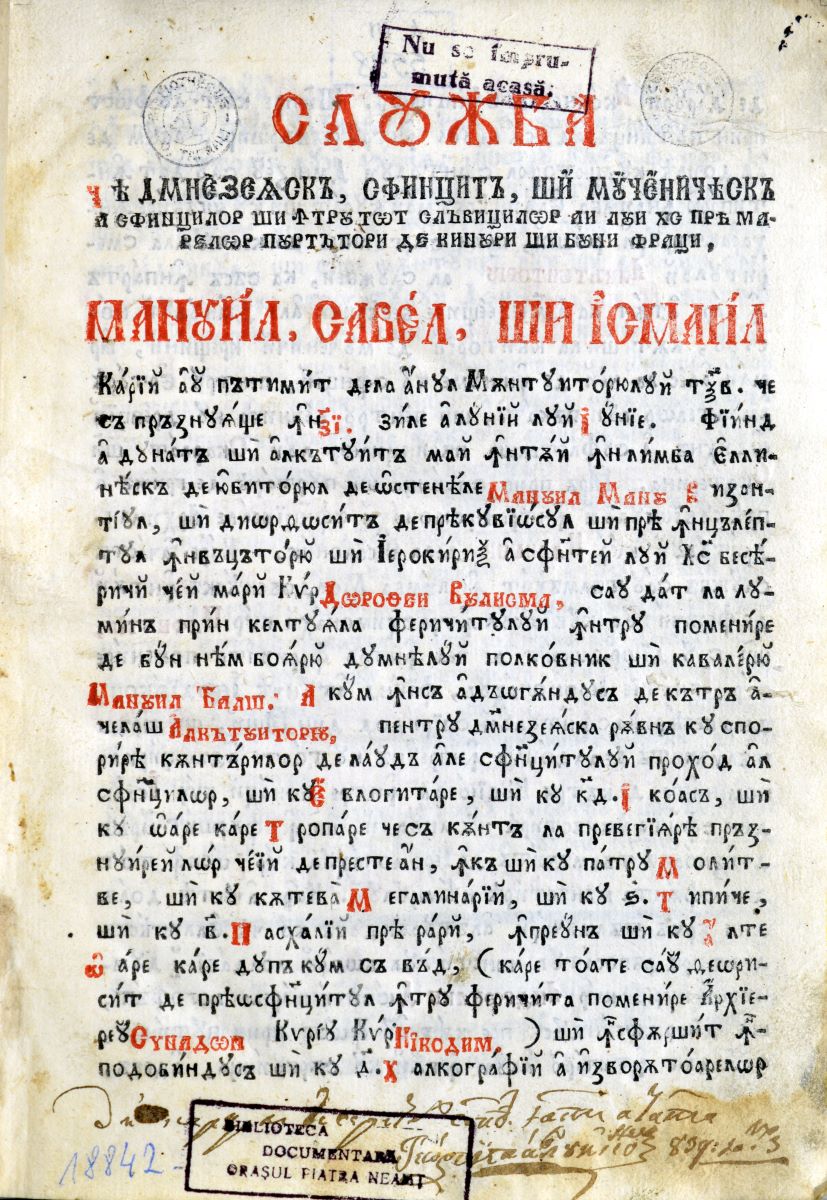 Nu se împru-
mută acasă.
СЛꙋЖБА
ЧѢ ДМНЕЗЕѦСКЪ, СФИНЦИТЪ, ШИ МꙋЧЕНИЧѢСКЪ
А СФИНЦИЛОР ШИ ꙞТРꙋ ТѠТ СЛЪВИЦИЛѠР АИ ЛꙋИ ХС ПРѢ МА-
РЕЛѠР ПꙋРТЪТОРИ ДЕ КИНꙋРИ ШИ БꙋНИ ФРАЦИ,
МАНꙋИ́Л, САВЕ́Л, ШИ ІСМАИ́Л
Ка́рїй аꙋ пътими́т дела а́нꙋл Мѫнтꙋито́рюлꙋй тꙁ҃в. че
съ пръзнꙋѧ́ще ꙟн з҃і. зи́ле алꙋ́нїй лꙋй Іꙋ́нїе. Фїи́нд
адꙋна́тъ шѝ алкътꙋи́тъ май ꙟнтѫ́й ꙟн ли́мба Елли-
нѣ́скъ де юби́торюл де ѡстене́ле Манꙋил Манꙋ Визан-
ті́ꙋл, шѝ дїѡрдѡси́тъ де прѣкꙋвїѡ́сꙋл шѝ прѣ ꙟнцълѐп-
тꙋл ꙟнвъцъто́рю шѝ Іерокири́ѯ а сфи́нтей лꙋй Хс҃ бесѣ́-
ричй че́й ма́рй Кѵ́р Дѡроѳеи Вꙋлисма, саꙋ да́т ла лꙋ-
ми́нъ при́н келтꙋѧ́ла феричи́тꙋлꙋй ꙟнтрꙋ помени́ре
де бꙋ́н нѣ́м боѧ́рю дꙋмнѣлꙋ́й полко́вник шѝ кавале́рю
Манꙋил Балш. Акꙋм ꙟнсъ адъѡгѫ́ндꙋсъ де кѫтръ а-
чела́ш Алкътꙋиторю, пентрꙋ дꙋмнезеѧ́ска рѫ́внъ кꙋ спо-
ри́рѣ кѫнтъ́рилор де ла́ꙋдъ а́ле сфи҃нцитꙋлꙋй прохо́д а́л
сфи҃нцилѡр, шѝ кꙋ Е҆влогита́ре, шѝ кꙋ к҃д. Іко́асъ, шѝ
кꙋ ѡ́аре ка́ре Тропа́ре че съ кѫ́нтъ ла превегїѧ́рѣ пръз-
нꙋи́рей лѡ́р че́їй де престе а́н, ꙟкъ шѝ кꙋ па́трꙋ Моли́т-
ве, шѝ кꙋ кѫ́тева Мегалина́рїй, шѝ кꙋ ѕ҃. Типи́че,
шѝ кꙋ в҃. Пасха́лїй прѣ ра́рй, ꙟпреꙋ́нъ шѝ кꙋ А́лте
ѡ́аре ка́ре дꙋпъ кꙋ́м съ въ́д, (ка́ре то́ате саꙋ дїѡри-
си́т де прѣѡсфи҃нци́тꙋл ꙟтрꙋ феричи́та помени́ре Архїе-
реꙋ Сѵнадѡн Кѵрі́ꙋ Кѵ́р Никодим,) шѝ ꙟсфѫрши́т ꙟ-
подоби́ндꙋсъ шѝ кꙋ д҃. Халкогра́фїй а изворѫтоа́релѡр
BIBLIOTECA
DOCUMENTARĂ
ORAȘUL PIATRA NEAMȚ
18842